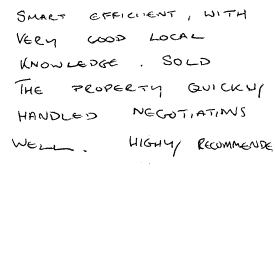 SMART EFFICIENT, WITH
VERY GOOD LOCAL
KNOWLEDGE. SOLD
THE PROPERTY QUICKLY
HANDLED NEGOTIATIONS
WELL. HIGHLY RECOMMENDE